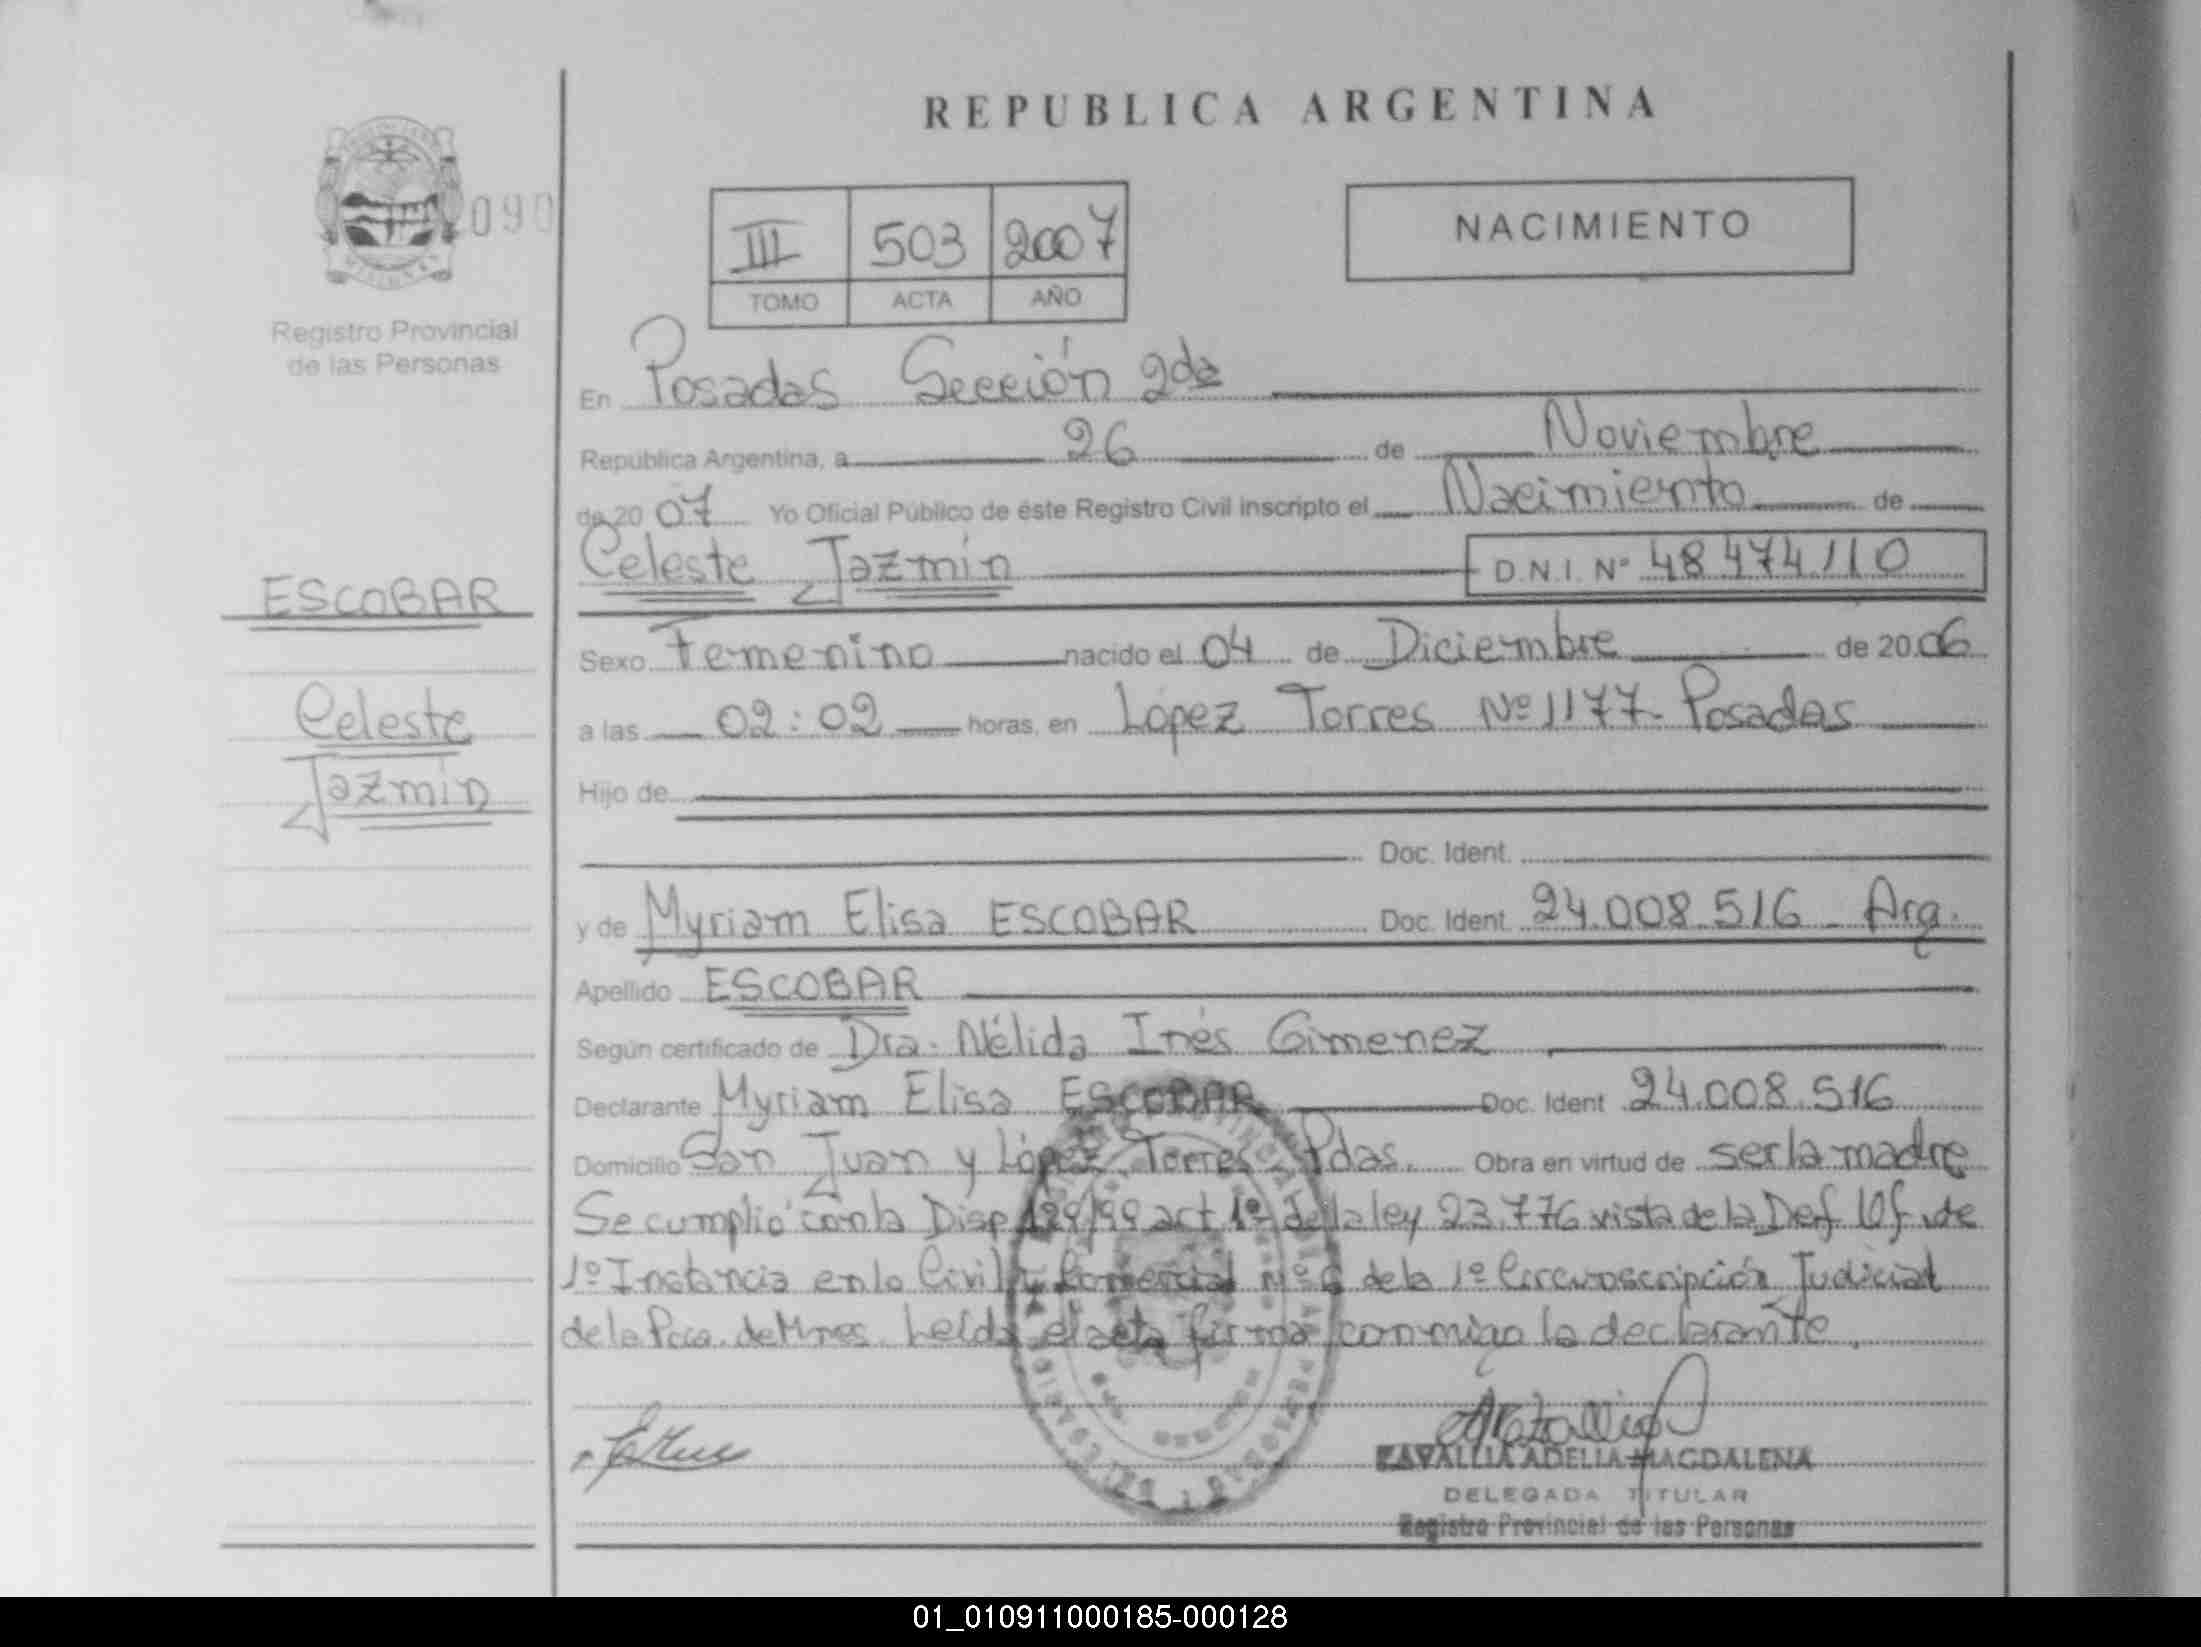 REPUBLICA ARGENTINA
090
Registro Provincial
de las Personas
III 503 2007
TOMO ACTA AÑO
NACIMIENTO
En Posadas Sección 2da
República Argentina, a 26 de Noviembre
de 2007 Yo Oficial Público de éste Registro Civil inscripto el Nacimiento de
Celeste Jazmín D.N.I. Nº 48.474.110
ESCOBAR
Celeste
Jazmín
Sexo Femenino nacido el 04 de Diciembre de 2006
a las 02:02 horas, en López Torres Nº 1177- Posadas
Hijo de
Doc. Ident.
y de Myriam Elisa ESCOBAR Doc. Ident. 24.008.516 - Arg.
Apellido ESCOBAR
Según certificado de Dra. Nélida Inés Gimenez
Declarante Myriam Elisa ESCOBAR Doc. Ident 24.008.516
Domicilio San Juan y López Torres - Pdas. Obra en virtud de ser la madre
Se cumplió con la Disp 129/99 art 1º de la ley 23.776 vista de la Def. Of. de
1º Instancia en lo Civil y Comercial Nº 6 de la 1º Circunscripción Judicial
de la Pcia. de Mnes. Leída el acta firma conmigo la declarante.
ZAVALLIA ADELIA MAGDALENA
DELEGADA TITULAR
Registro Provincial de las Personas
01_010911000185-000128